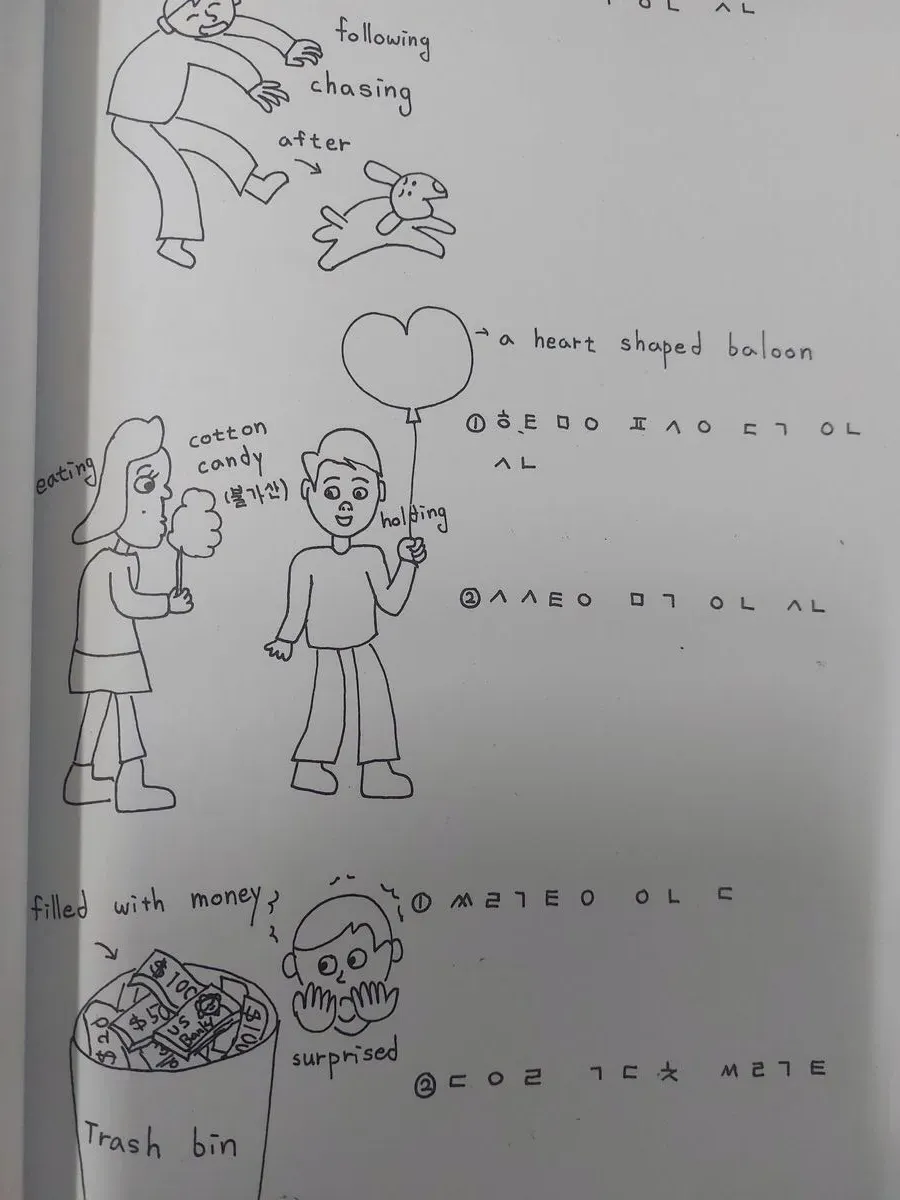 ㅇㄴ ㅅㄴ
following
chasing
after
→ a heart shaped baloon
① ㅎㅌㅁㅇ ㅍㅅㅇ ㄷㄱ ㅇㄴ
ㅅㄴ
eating
cotton
candy
(불가산)
holding
② ㅅㅅㅌㅇ ㅁㄱ ㅇㄴ ㅅㄴ
filled with money
① ㅆㄹㄱㅌㅇ ㅇㄴ ㄷ
$100
$50
$20
US
Bank
$100
surprised
② ㄷㅇㄹ ㄱㄷㅊ ㅆㄹㄱㅌ
Trash bin